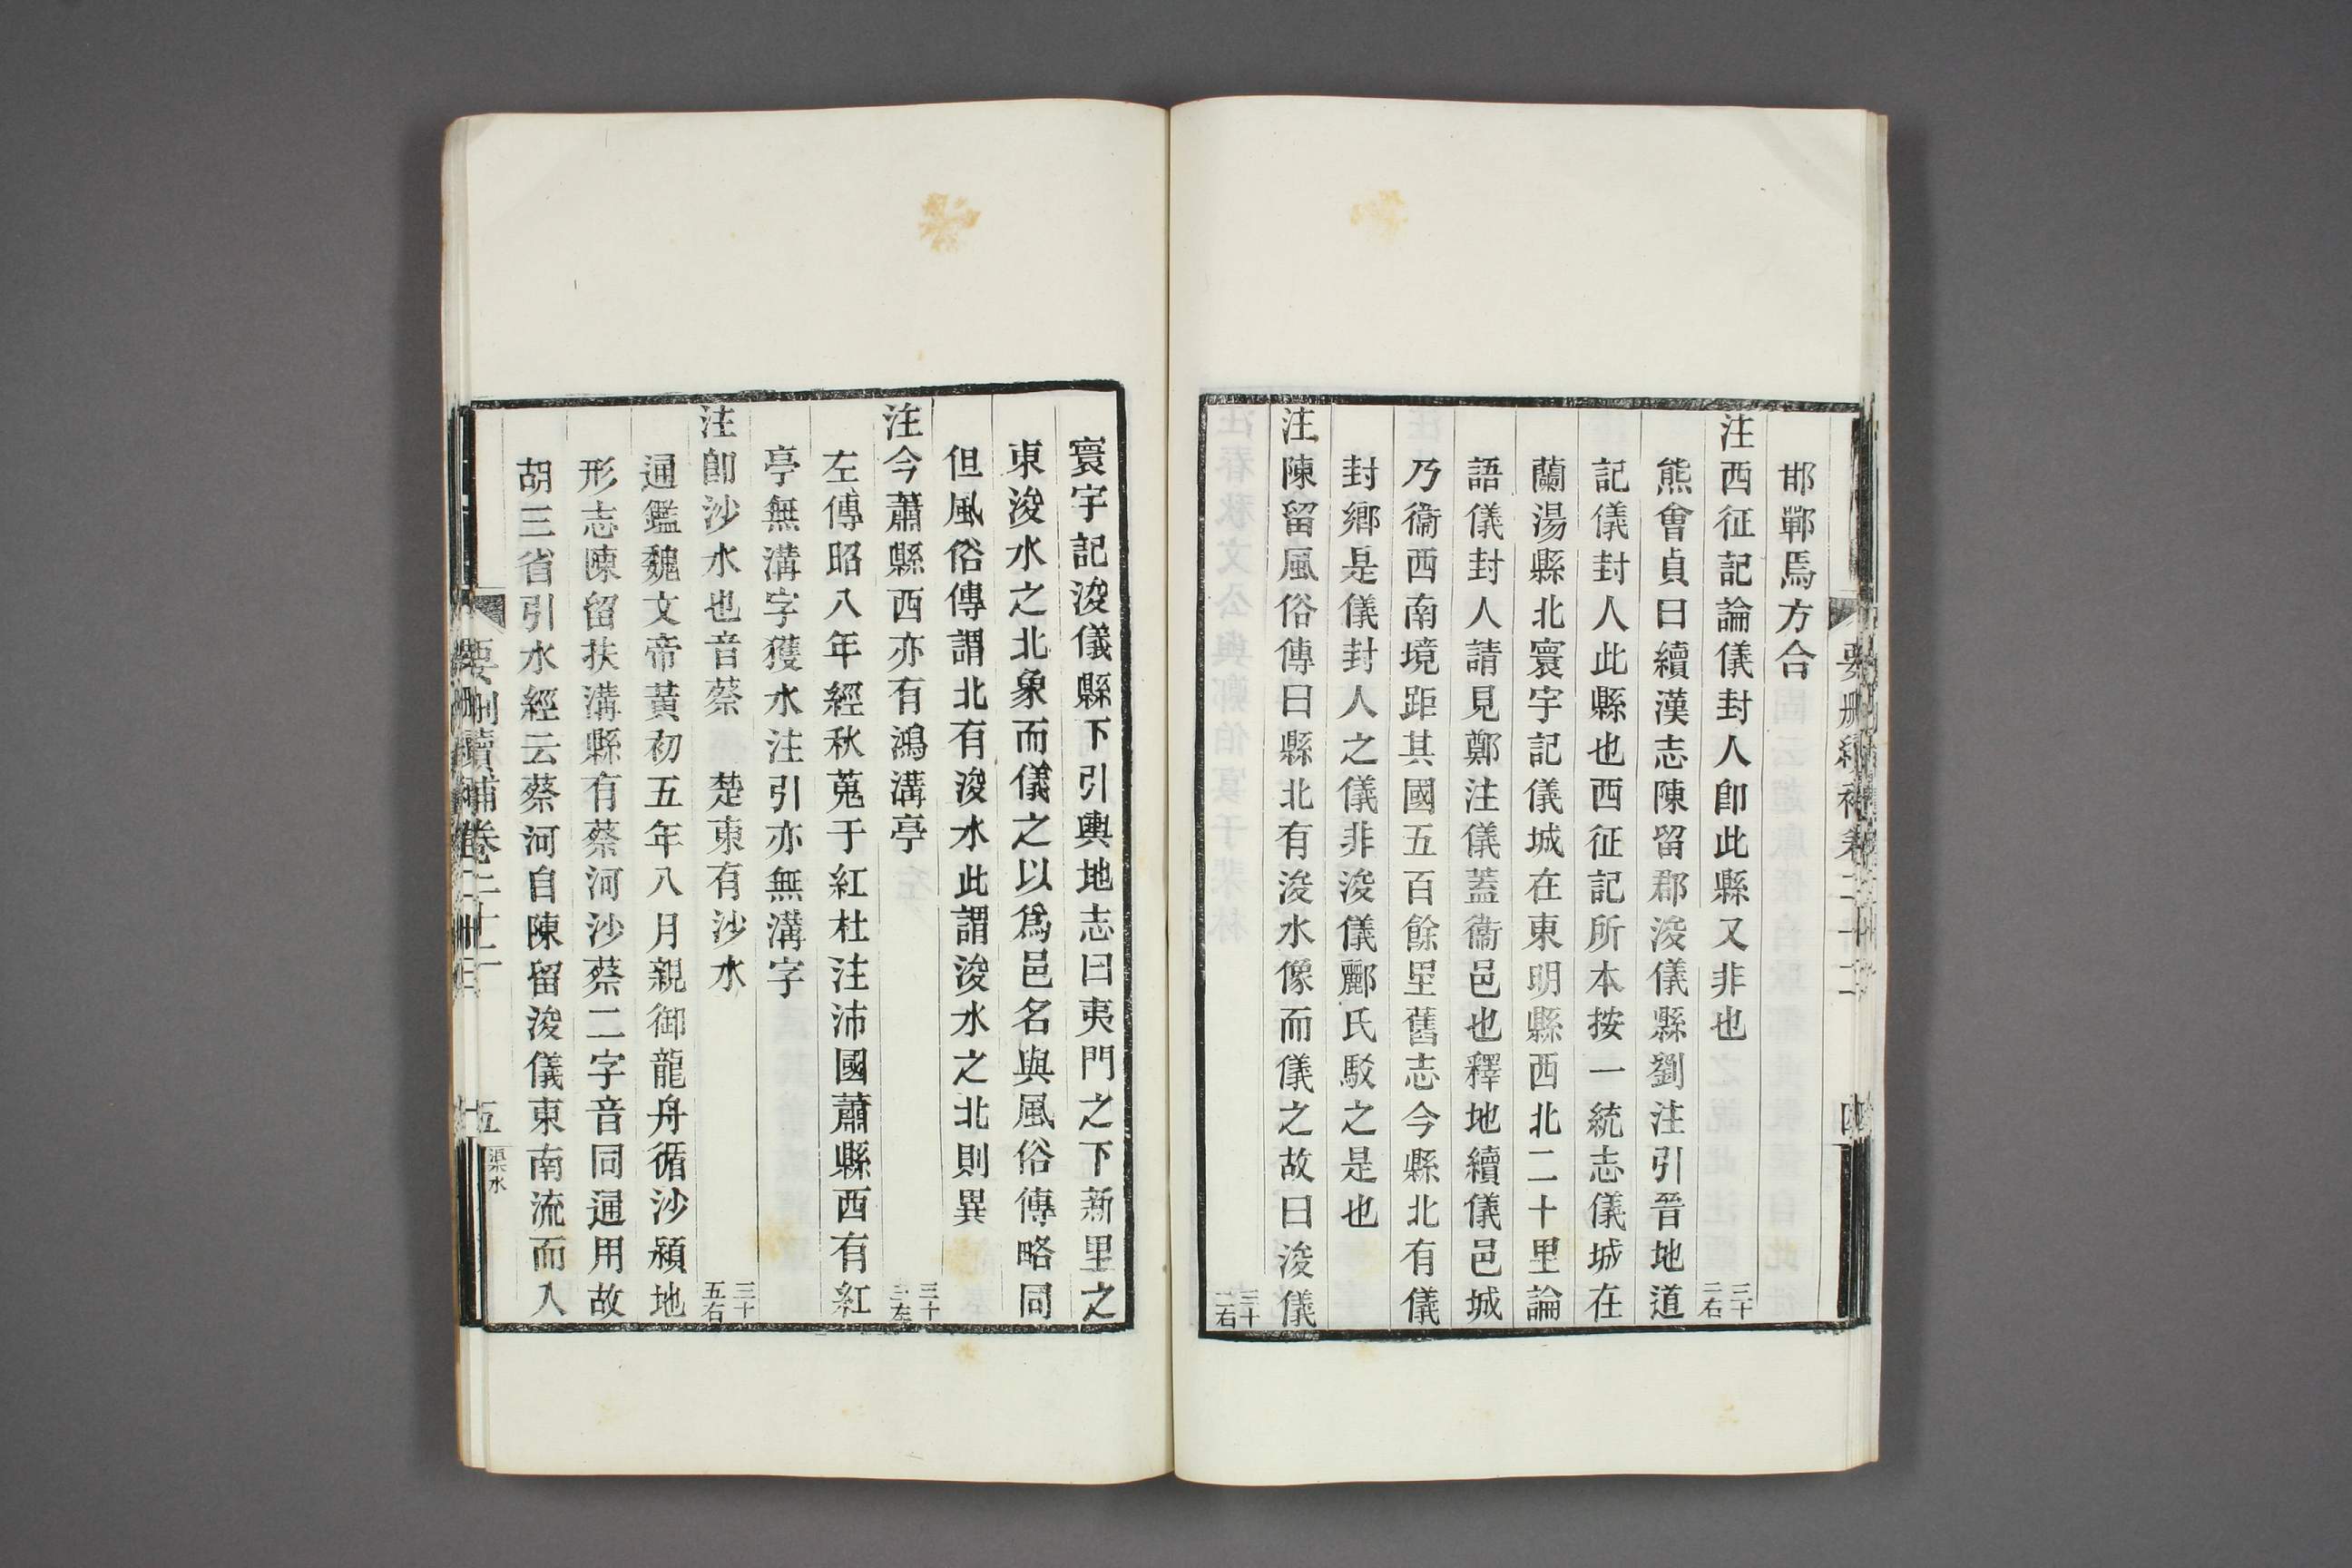 邯鄲焉方合
注西征記論儀封人卽此縣又非也 三十二右
熊會貞曰續漢志陳留郡浚儀縣劉注引晉地道
記儀封人此縣也西征記所本按一統志儀城在
蘭湯縣北寰宇記儀城在東明縣西北二十里論
語儀封人請見鄭注儀蓋衞邑也釋地續儀邑城
乃衞西南境距其國五百餘里舊志今縣北有儀
封鄉是儀封人之儀非浚儀酈氏駁之是也
注陳留風俗傳曰縣北有浚水像而儀之故曰浚儀
三十二右
寰宇記浚儀縣下引輿地志曰夷門之下新里之
東浚水之北象而儀之以爲邑名與風俗傳略同
但風俗傳謂北有浚水此謂浚水之北則異
注今蕭縣西亦有鴻溝亭 三十左
左傳昭八年經秋蒐于紅杜注沛國蕭縣西有紅
亭無溝字獲水注引亦無溝字
注卽沙水也音蔡 楚東有沙水 三十五右
通鑑魏文帝黃初五年八月親御龍舟循沙潁地
形志陳留扶溝縣有蔡河沙蔡二字音同通用故
胡三省引水經云蔡河自陳留浚儀東南流而入
要刪續補卷二十二
五
渠水